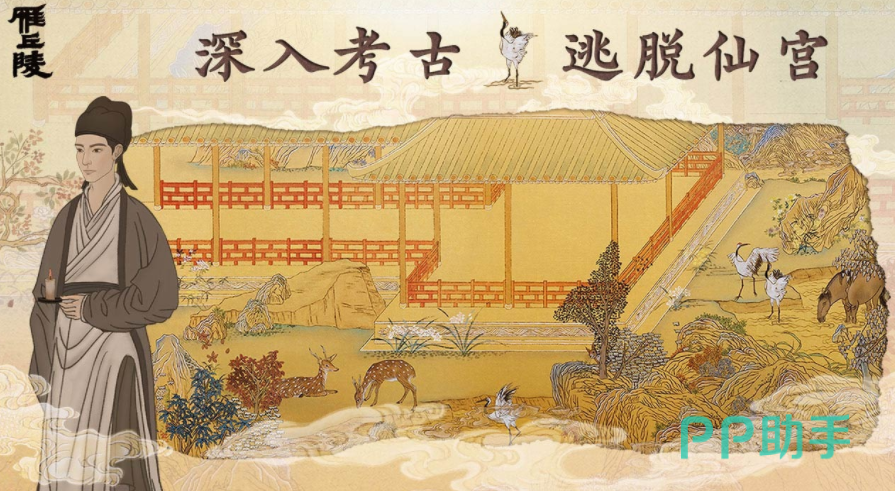 雁丘陵
深入考古 逃脱仙宫
PP助手